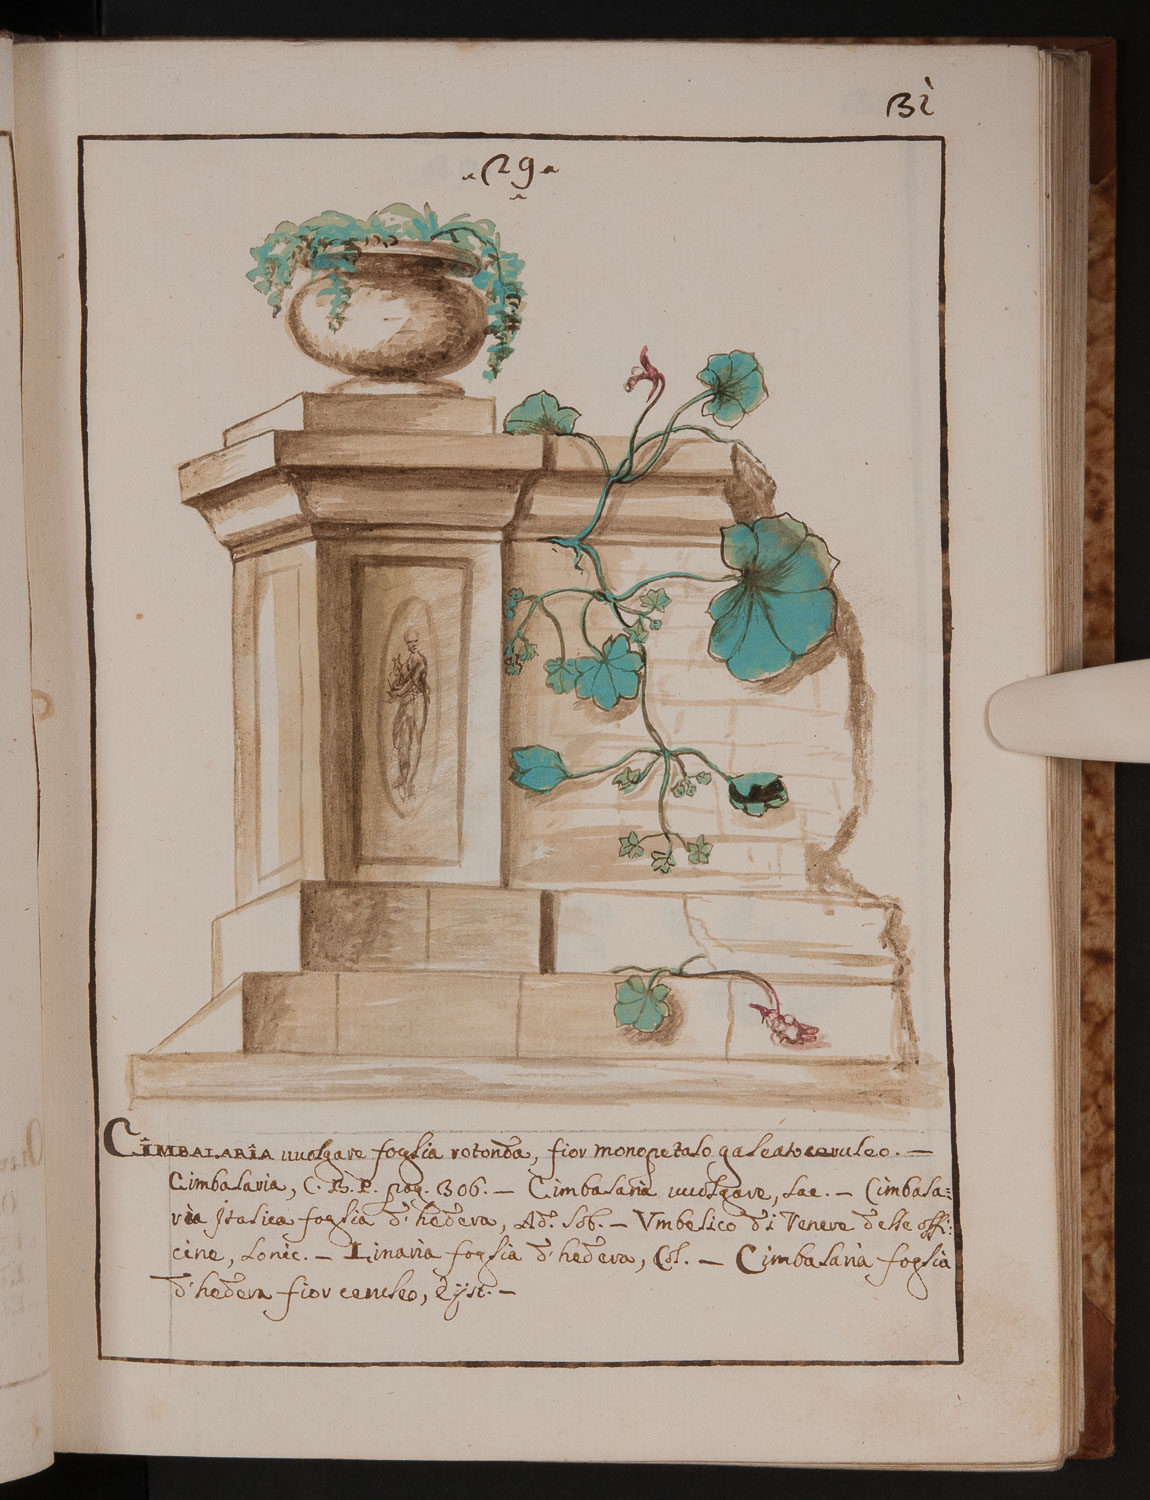 31
29
CIMBALARIA uuolgare foglia rotonda, fior monopetalo galeato ceruleo. —
Cimbalaria, C. B. P. pag. 306. — Cimbalaria uuolgare, Lac. — Cimbala=
ria Italica foglia d'hedera, Ad. Lob. — Vmbelico di Venere delle offi:
cine, Lonic. — Linaria foglia d'hedera, Col. — Cimbalaria foglia
d'hedera fior ceruleo, Eyst. —